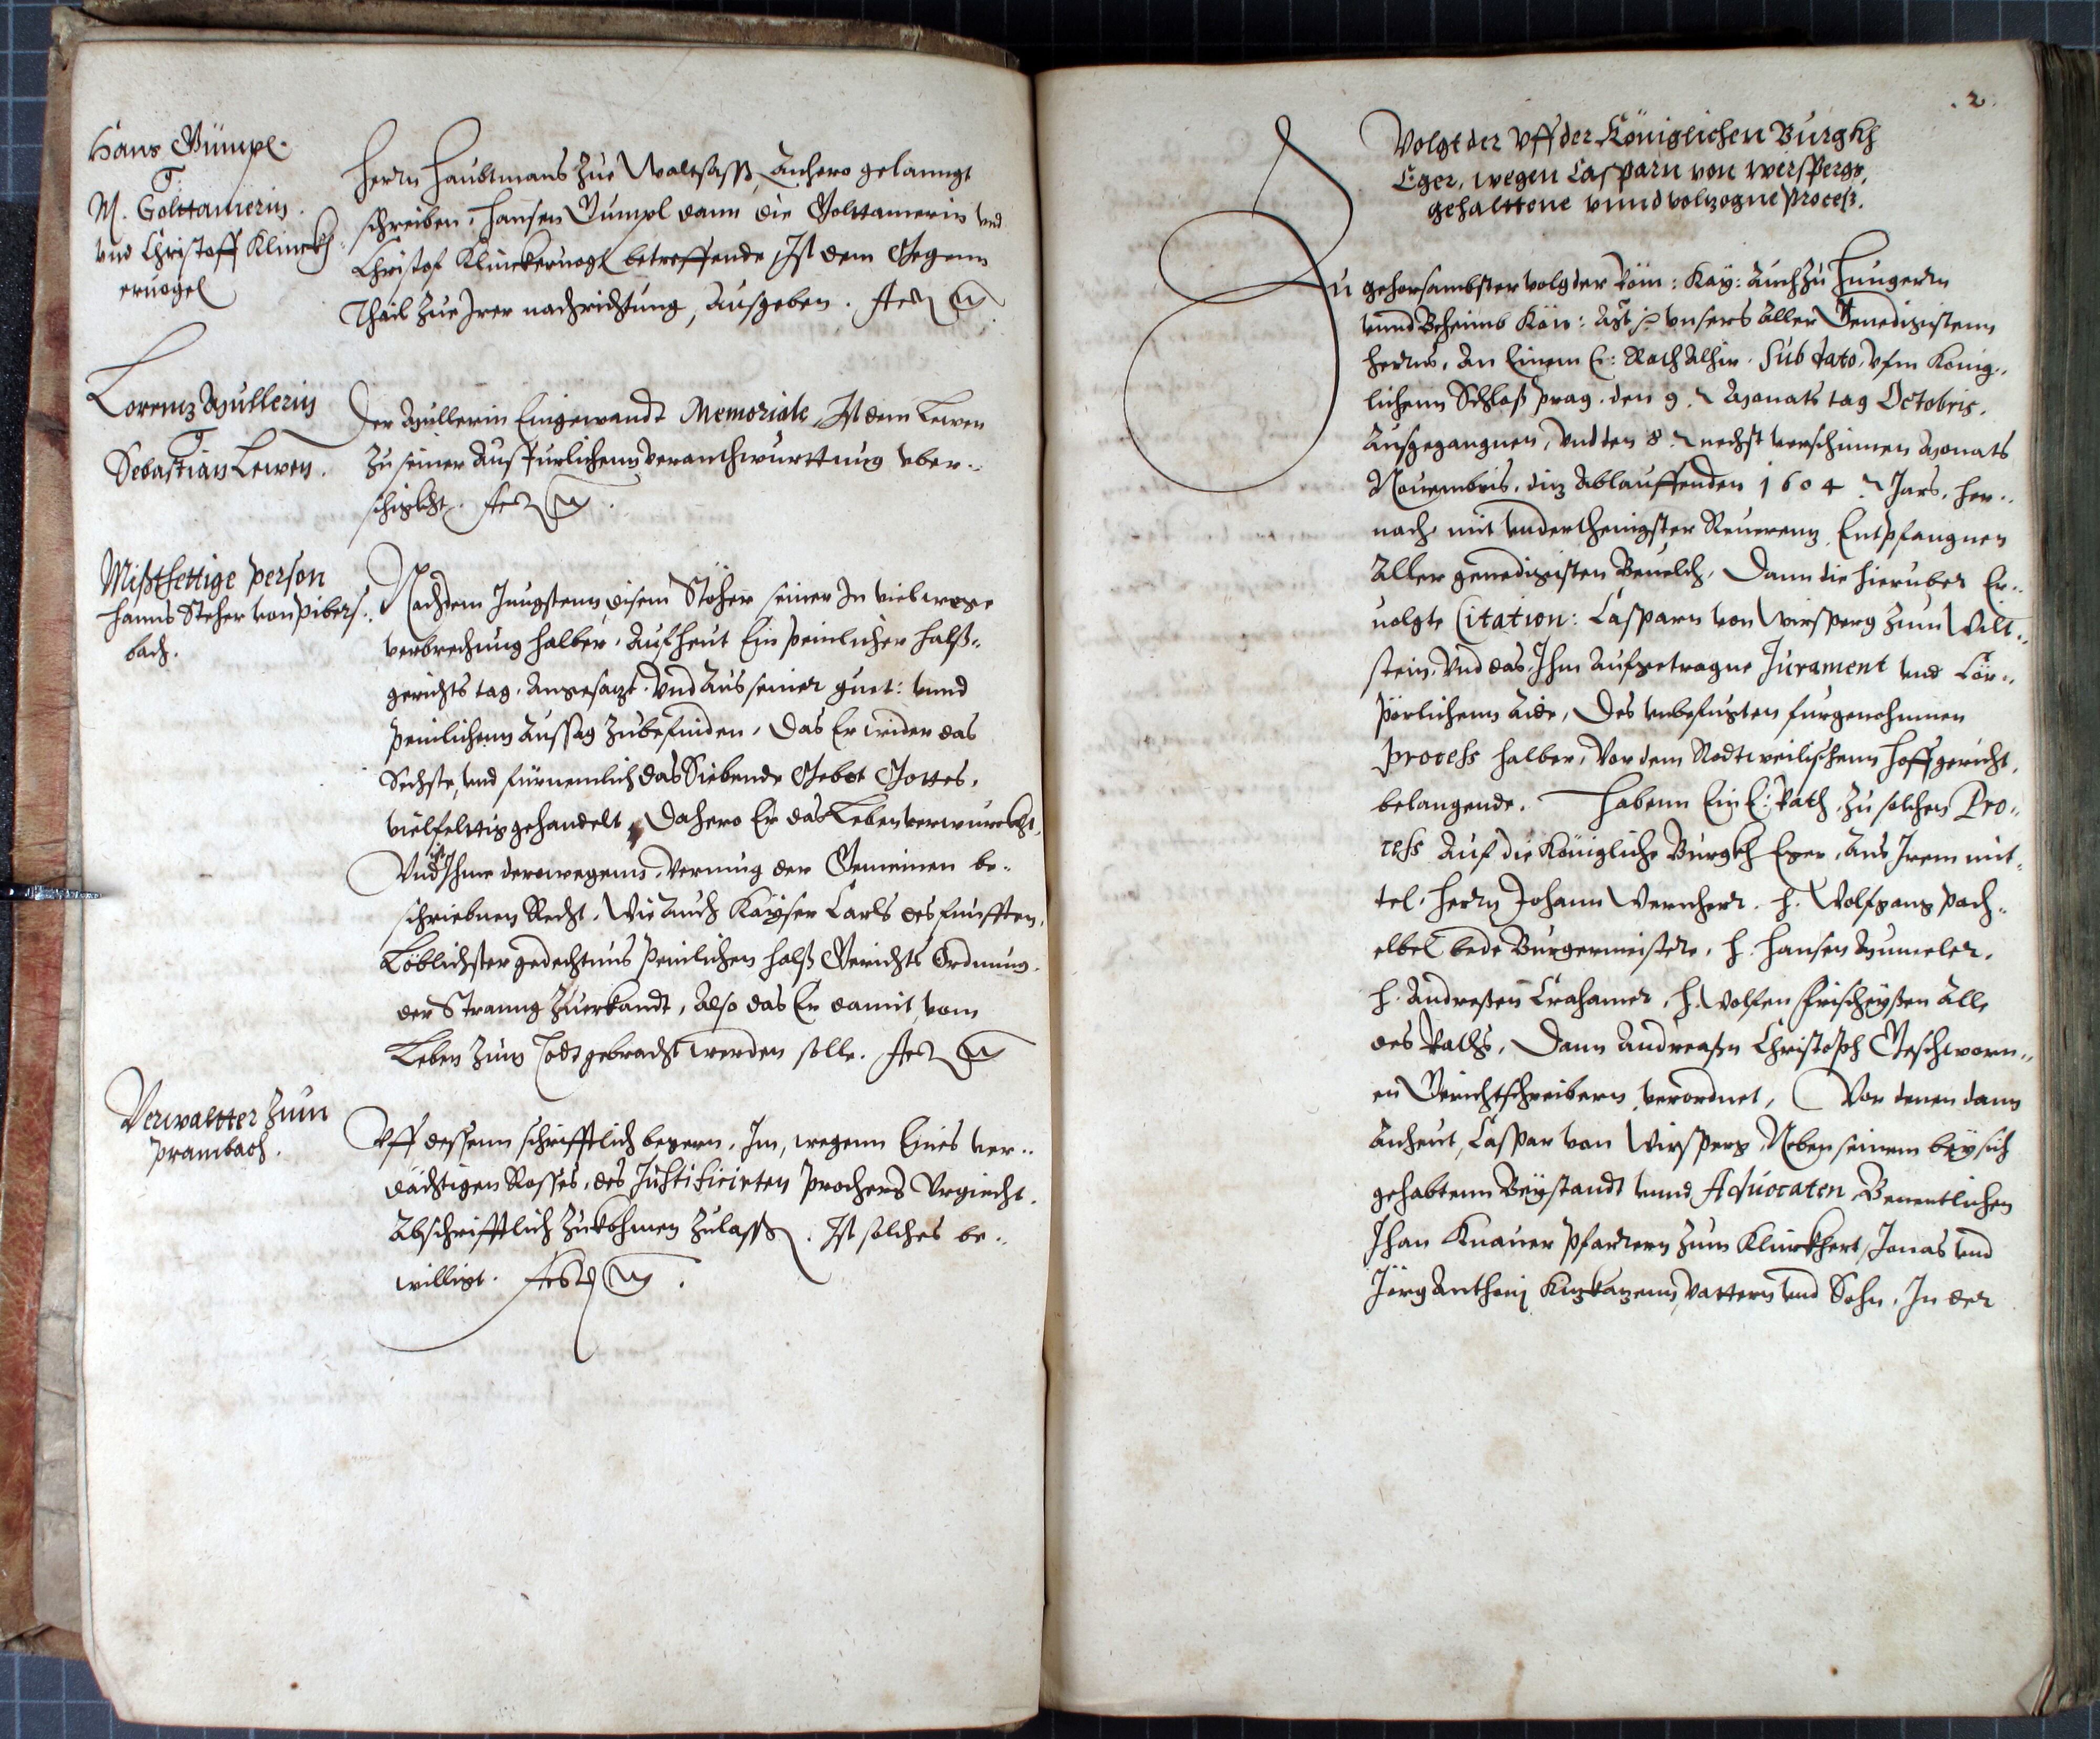 Hans Gümpl.
M. Golttamerin.
vnd Christoff Klinckh
ervogel
Herrn Haubtmans zue Waltsasß, Anhero gelanngt
schreiben, Hansen Gumpl dann die Golttamerin vnd
Christof Klinckervogl betreffende, Ist dem Gegenn
Thail zue Irer nachrichtung, Ausgeben.
Lorentz Mullerin
Sebastian Lewen.
Der Mullerin Eingewandt Memoriale, Ist dem Lewen
zu seiner Ausfurlichenn veranthwurttung vber..
schickht.
Mißthettige person
Hanns Steher von pibers..
bach.
Nachdem Jungstenn, disem Stöher seiner In vielwege
verbrechung halber, Auf heut Ein peinlicher halß..
gerichts tag, Angesatzt, vnd Aus seiner guet: vnnd
peinlichenn Aussag zubefinden, Das Er wider das
Sechste, vnd fürnemlich das Siebende Gebot Gottes,
vielfelttig gehandelt, Dahero Er das Leben verwurckht,
Vnd ist Ihme derowegenn, vermug der Gemeinen be..
schriebnen Recht, Wie auch Kayser Carls des funfften,
Löblichster gedechtnus peinlichen halß Gerichts Ordnung,
der Stranng zuerkandt, Also das Er damit vom
Leben zum Todt gebracht werden solle.
Verwaltter zum
prambach.
Vff dessenn schrifftlich begern, Im, wegenn Eines ver..
dächtigen Rosses, des Justificirten prochers Vrgicht,
Abschrifftlich zukohmen zulassen. Ist solches be..
willigt.
2
Volgt der Vff der Königlichen Burgkh
Eger, wegen Casparn von Wirsperg,
gehalttene vnnd volzogne Proceß.
Zu gehorsambster volg der Röm: Kay: Auch zu Hungern
vnnd Beheimb Kön: Mt: vnsers Aller Genedigistenn
herrns, An Einem E: Rath Alhir. Sub dato, vfm König..
lichenn Schloß Prag, den 9. Monats tag Octobris,
Ausgegangnen, vnd den 8. nechst verschinnen Monats
Nouembris, diz Ablauffenden 1604. Jars, her..
nach mit vnderthenigster Reuerenz, Entpfangnen
Aller genedigisten Beuelch, Dann die hieruber Er..
uolgte Citation: Casparn von Wirsperg zum Wilt..
stein, vnd das Ihm Aufgetragne Jurament vnd Cör..
pörlichenn Aide, Des vnbefugten furgenohmmen
Process halber, vor dem Rodtweilischenn Hoffgericht,
belangende. Habenn Ein E: Rath, zu solchen Pro..
cess Auf die Königliche Burgkh Eger, Aus Irem mit..
tel, Herrn Johann Wernherr, H. Wolfgang Pach..
elbel bede Burgermeistere, H. Hansen Mumeler,
H. Andreßen Crahamer, H. Wolfen Frischeyßen Alle
des Raths, Dann Andreaßn Christoph Geschworn..
en Gerichtschreibern verordnet, Vor denen dann
Anheut, Caspar von Wirsperg, Neben seinem bey sich
gehabtenn Beystandt vnnd Aduocaten, Benentlichen
Ihan Knauer Pfarrern zum Klinckhert, Jonas vnd
Jörg Anthonj Kuzkazenn, Vattern vnd Sohn, In der